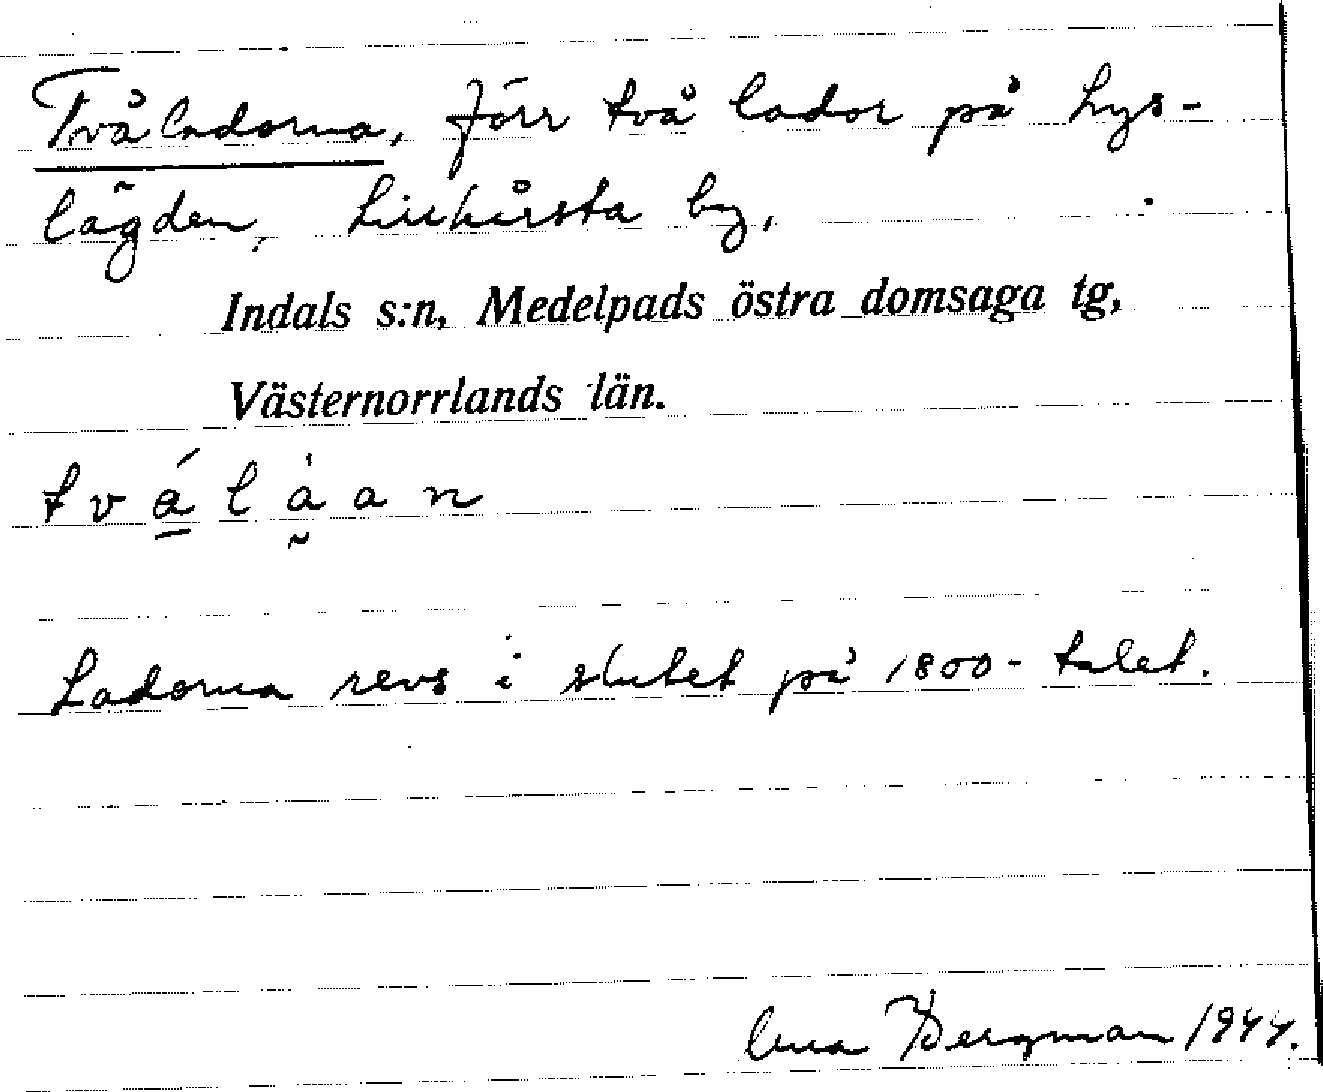 Tvåladorna, förr två lador på Lys-
lägden, Lillhårsta by,
Indals s:n, Medelpads östra domsaga tg,
Västernorrlands län.
tvá̱là̰an
Ladorna revs i slutet på 1800-talet.
Bergman 1944.